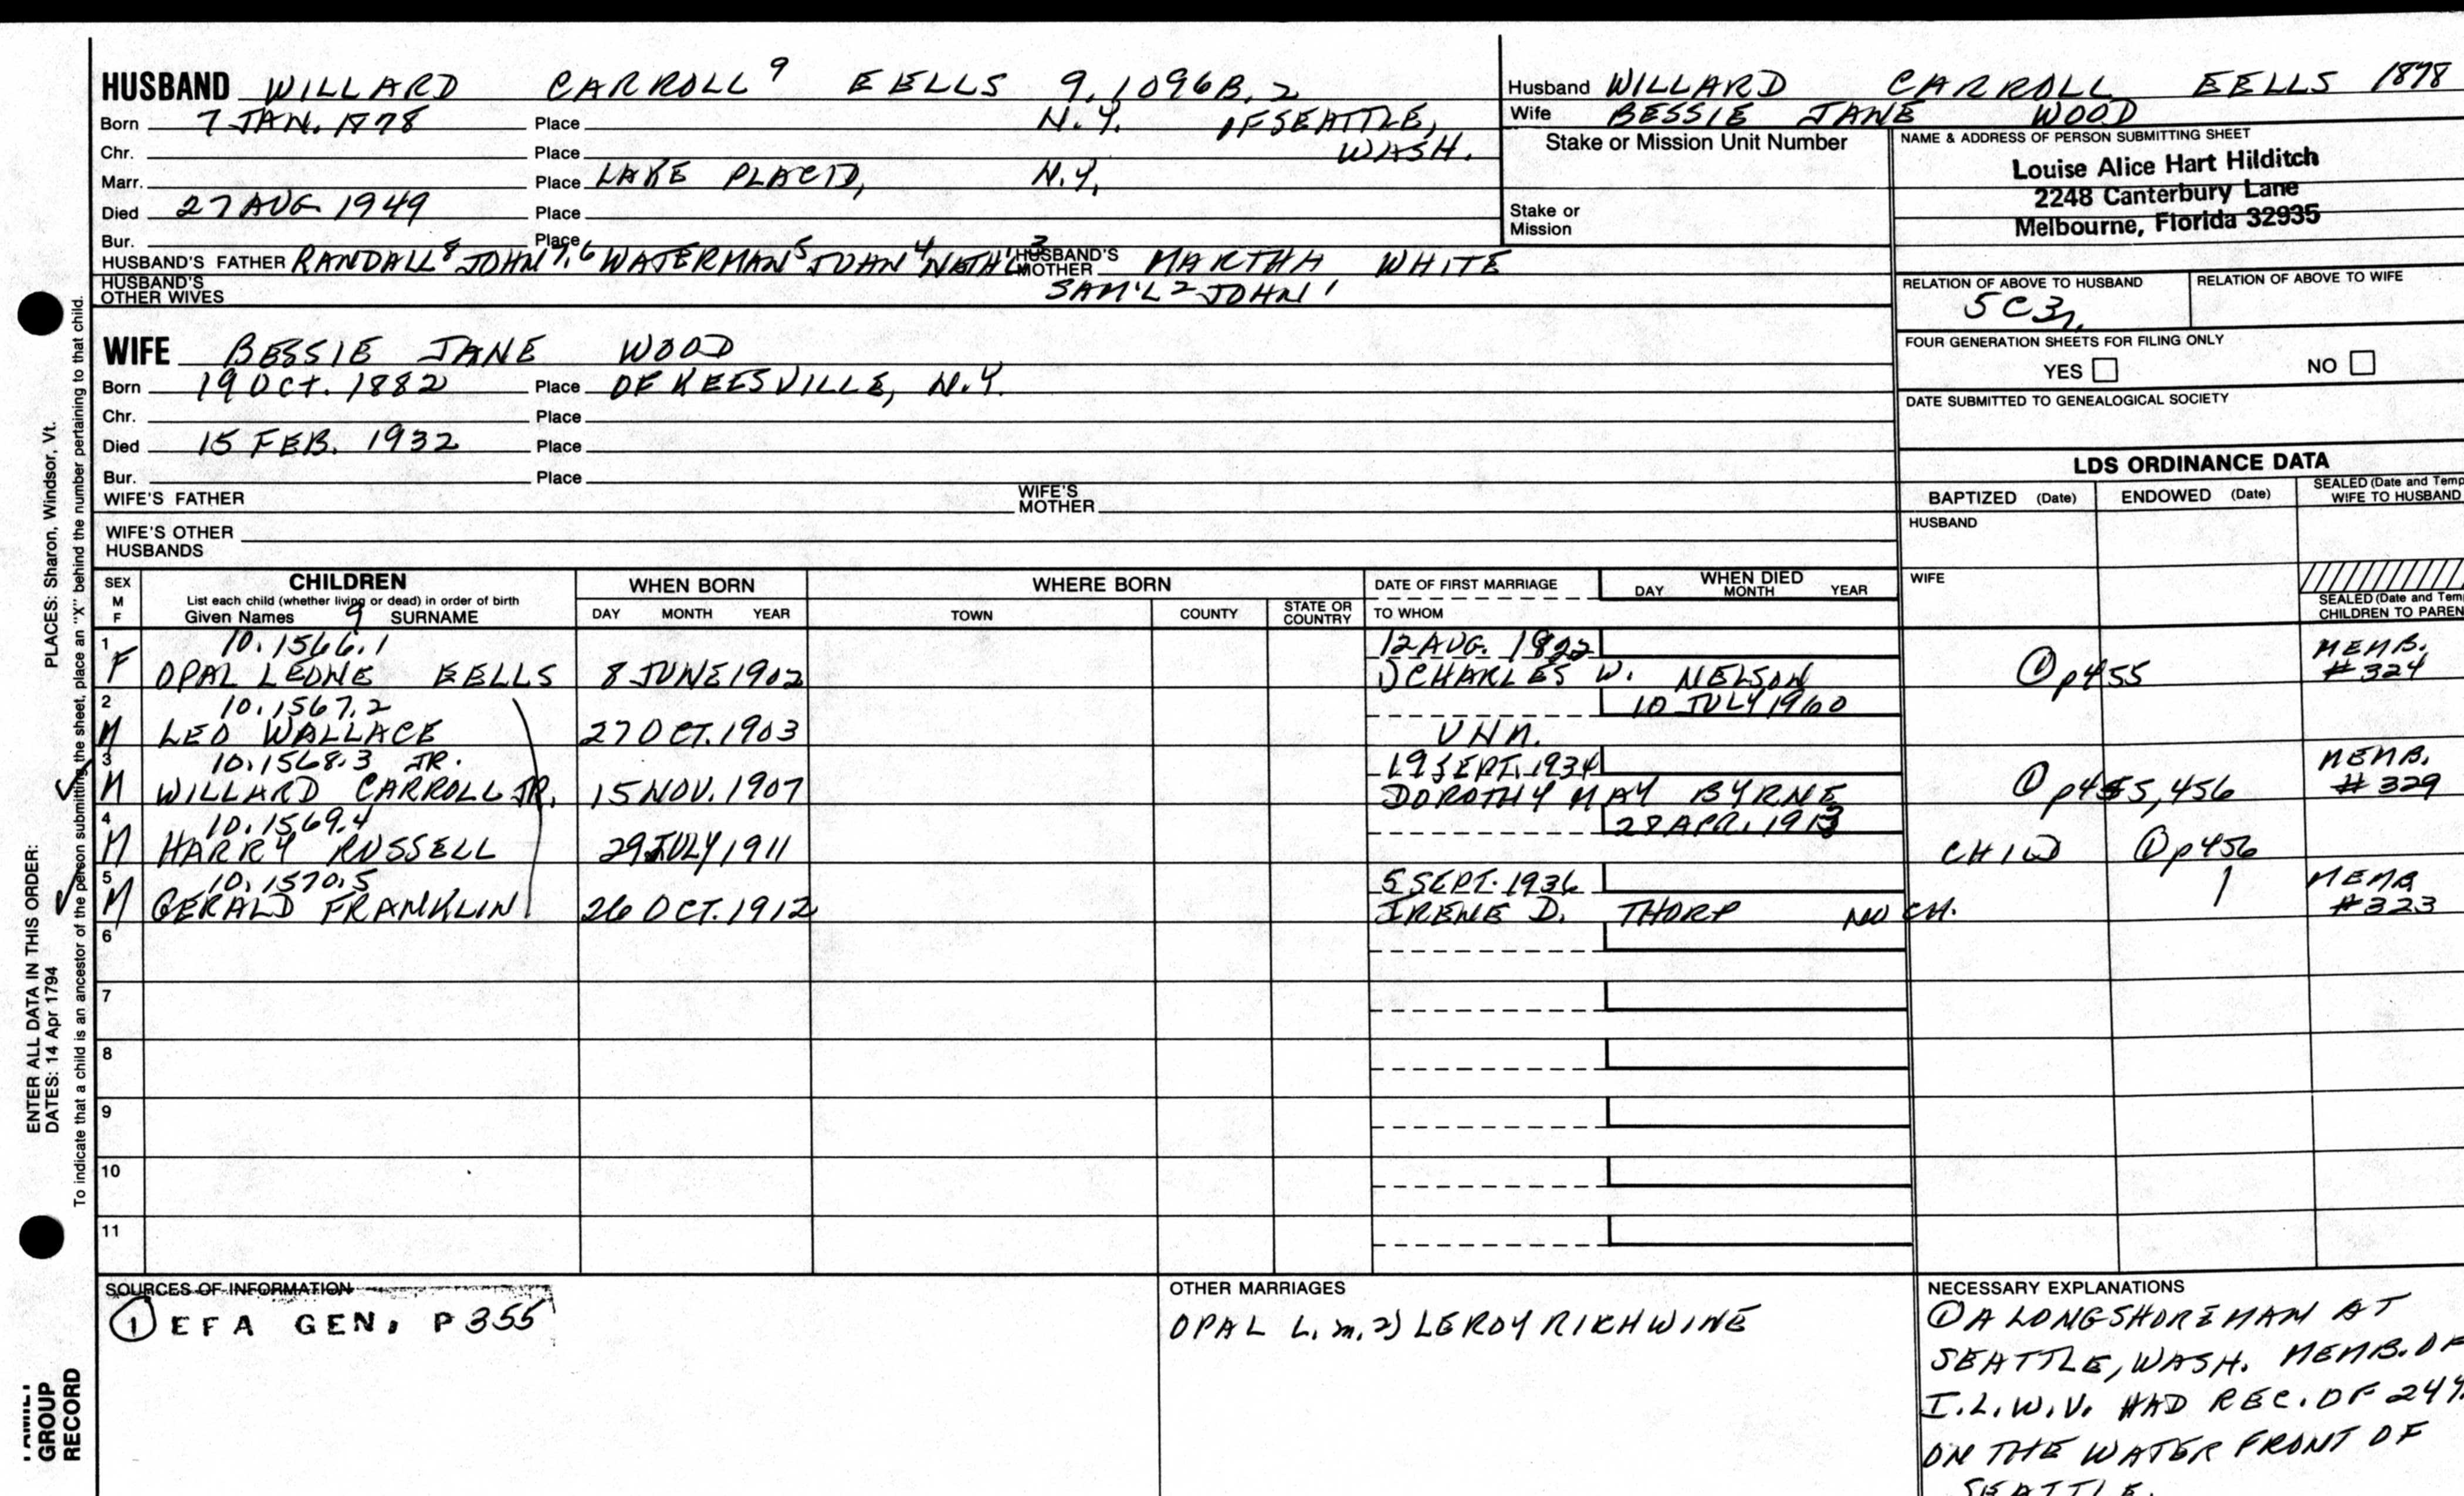 HUSBAND WILLARD CARROLL 9 EELLS 9.1096B.2
Born 7 JAN. 1878 Place N.Y. OF SEATTLE,
Chr. Place WASH.
Marr. Place LAKE PLACID, N.Y.
Died 27 AUG. 1949 Place
Bur. Place
HUSBAND'S FATHER RANDALL 8 JOHN 7,6 WATERMAN 5 JOHN 4 NATH'L 3 HUSBAND'S MOTHER MARTHA WHITE
HUSBAND'S OTHER WIVES SAM'L 2 JOHN 1
WIFE BESSIE JANE WOOD
Born 19 OCT. 1882 Place OF KEESVILLE, N.Y.
Chr. Place
Died 15 FEB. 1932 Place
Bur. Place
WIFE'S FATHER WIFE'S MOTHER
WIFE'S OTHER HUSBANDS
Husband WILLARD CARROLL EELLS 1878
Wife BESSIE JANE WOOD
Stake or Mission Unit Number
Stake or Mission
NAME & ADDRESS OF PERSON SUBMITTING SHEET
Louise Alice Hart Hilditch
2248 Canterbury Lane
Melbourne, Florida 32935
RELATION OF ABOVE TO HUSBAND RELATION OF ABOVE TO WIFE
5C3r.
FOUR GENERATION SHEETS FOR FILING ONLY
YES NO
DATE SUBMITTED TO GENEALOGICAL SOCIETY
LDS ORDINANCE DATA
BAPTIZED (Date) ENDOWED (Date) SEALED (Date and Temp
WIFE TO HUSBAND
HUSBAND
WIFE
SEALED (Date and Tem
CHILDREN TO PAREN
SEX M F CHILDREN WHEN BORN WHERE BORN DATE OF FIRST MARRIAGE WHEN DIED
List each child (whether living or dead) in order of birth
Given Names 9 SURNAME DAY MONTH YEAR TOWN COUNTY STATE OR COUNTRY TO WHOM DAY MONTH YEAR
1 10.1566.1 12 AUG. 1922 MEMB.
F OPAL LEONE EELLS 8 JUNE 1902 1) CHARLES W. NELSON ① p455 #324
2 10.1567.2 10 JULY 1960
M LEO WALLACE 27 OCT. 1903 UNM.
3 10.1568.3 JR. 19 SEPT. 1934 MEMB.
M WILLARD CARROLL JR. 15 NOV. 1907 DOROTHY MAY BYRNE ① p455,456 #329
4 10.1569.4 28 APR. 1913
M HARRY RUSSELL 29 JULY 1911 CHILD ① p456
5 10.1570.5 5 SEPT. 1936 MEMB
M GERALD FRANKLIN 26 OCT. 1912 IRENE D. THORP NO CH. #323
6
7
8
9
10
11
SOURCES OF INFORMATION
① EFA GEN. P 355
OTHER MARRIAGES
OPAL L. m. 2) LEROY RICHWINE
NECESSARY EXPLANATIONS
① A LONGSHOREMAN AT
SEATTLE, WASH. MEMB. OF
I.L.W.U. HAD REC. OF 24
ON THE WATER FRONT OF
SEATTLE.
PLACES: Sharon, Windsor, Vt.
ENTER ALL DATA IN THIS ORDER:
DATES: 14 Apr 1794
To indicate that a child is an ancestor of the person submitting the sheet, place an "X" behind the number pertaining to that child.
FAMILY
GROUP
RECORD